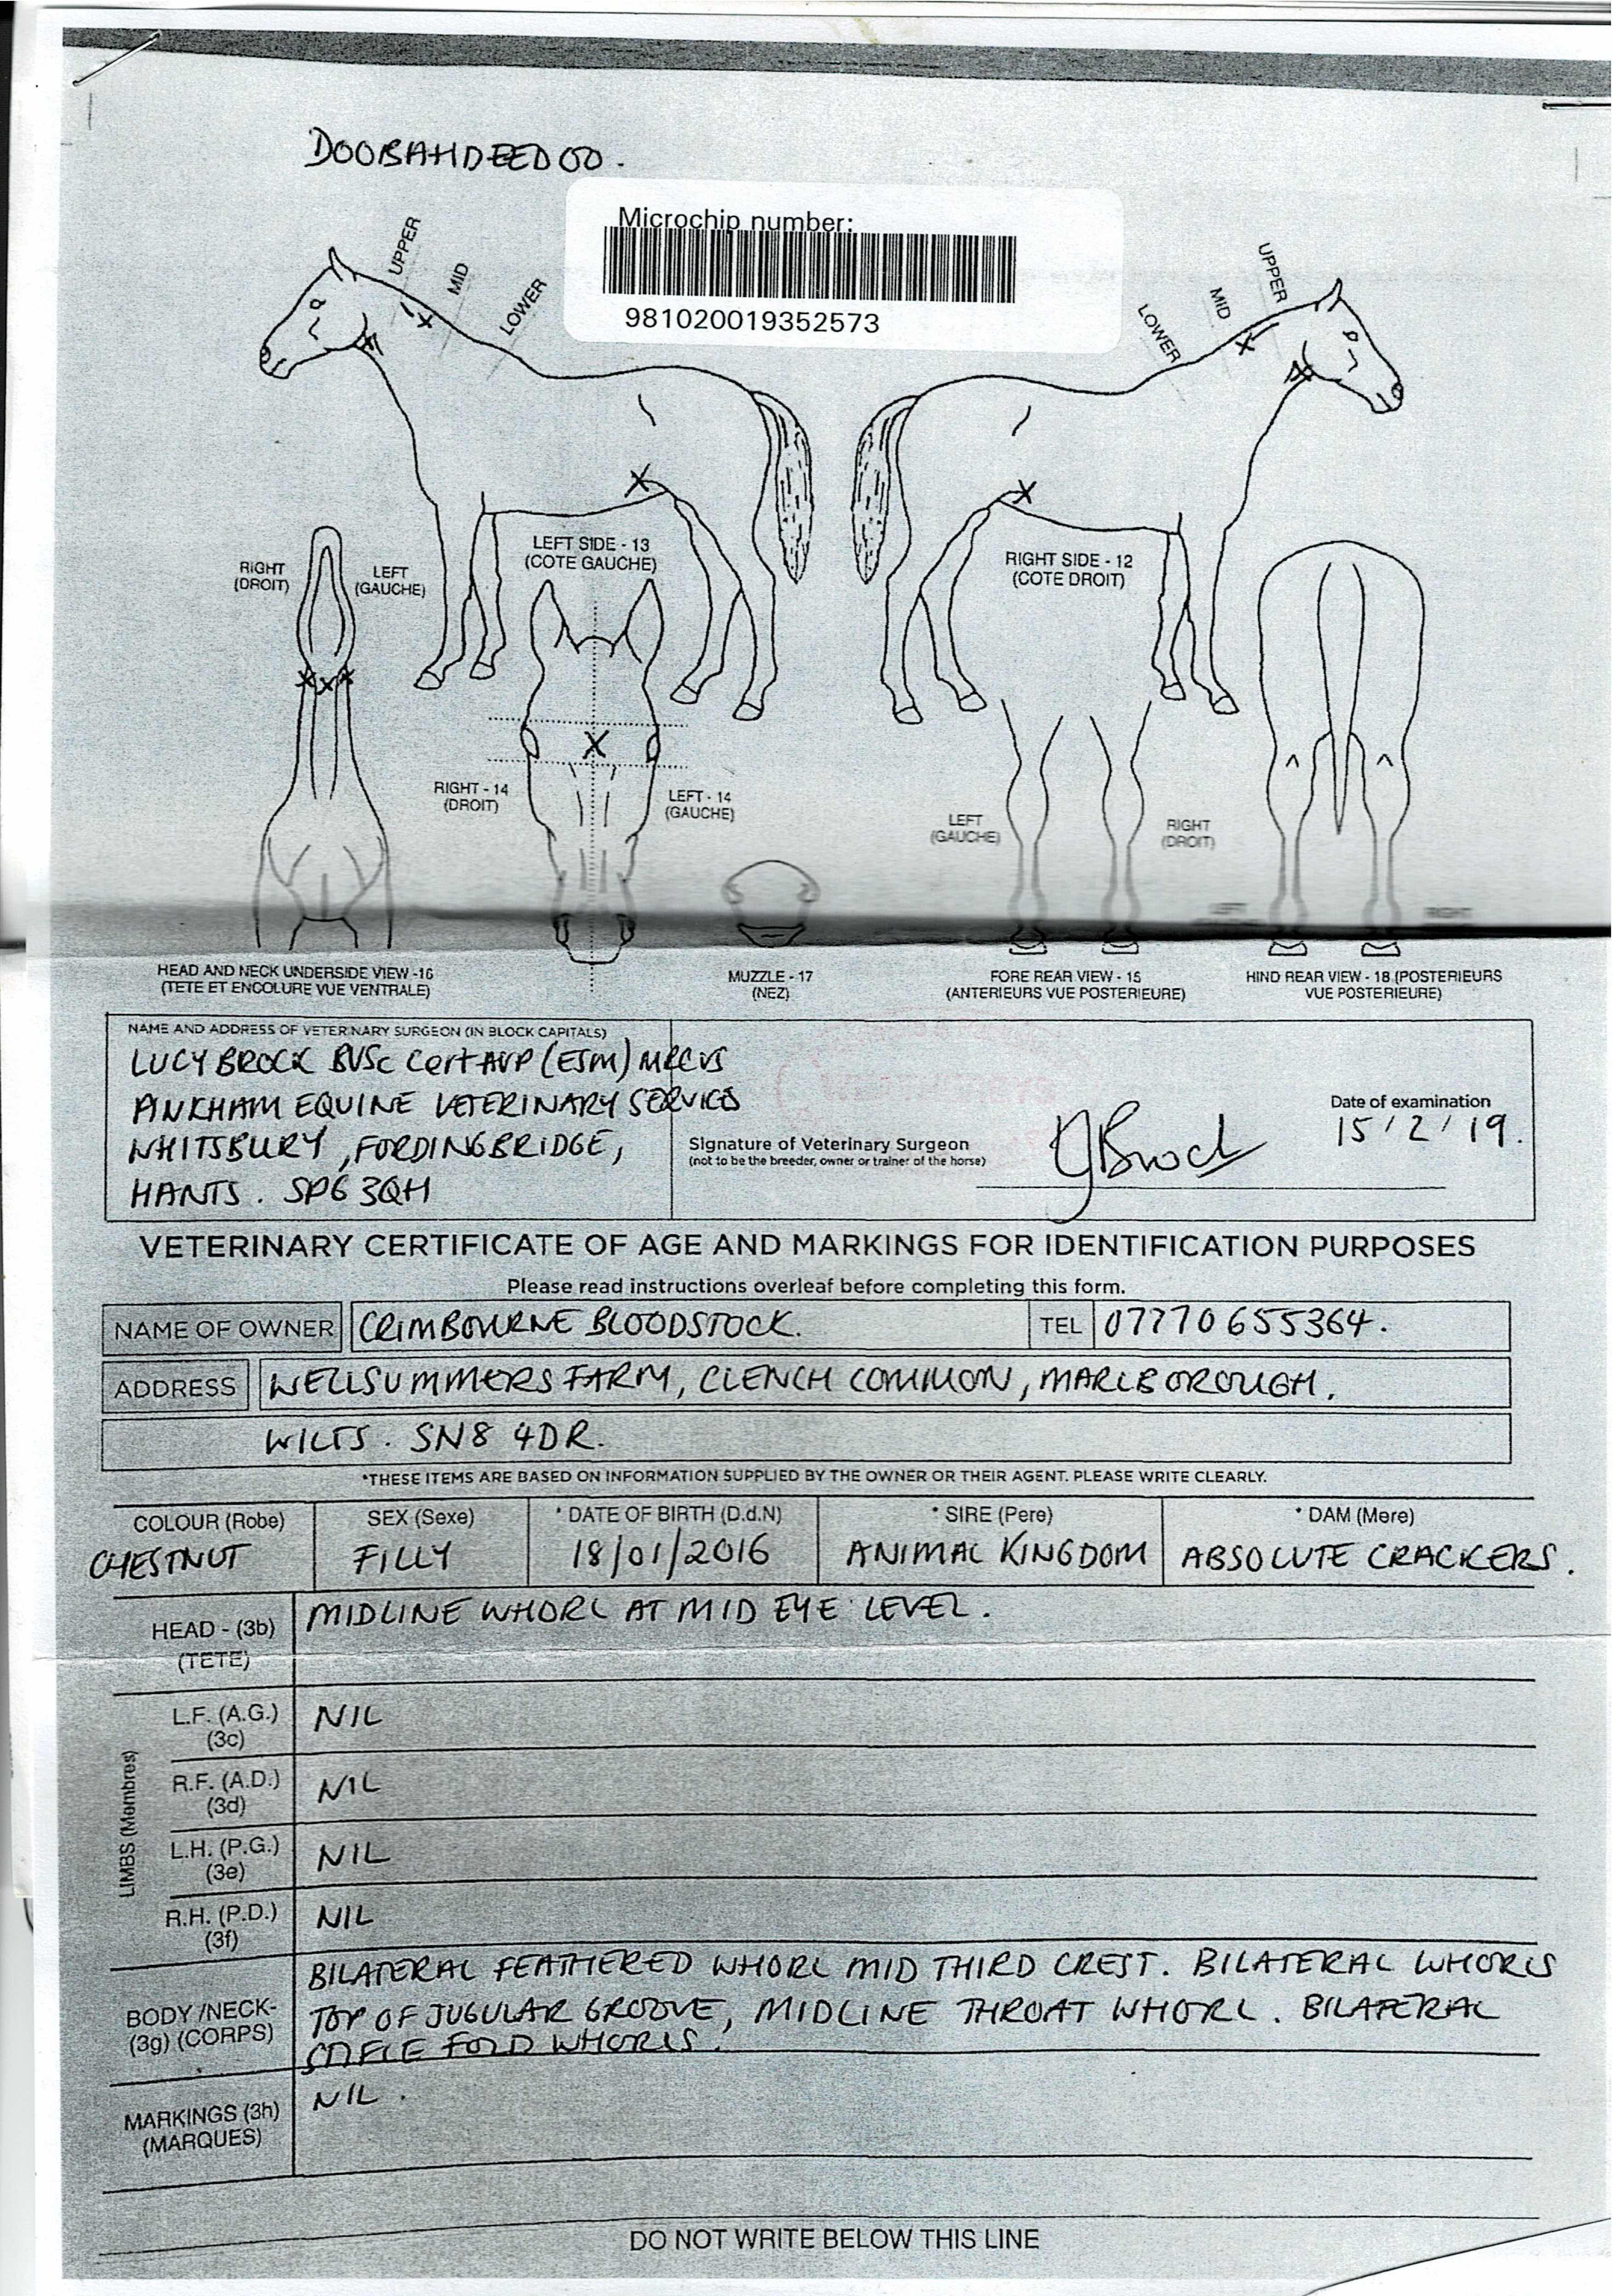 DOOBAHDEEDOO.
Microchip number:
981020019352573
UPPER
MID
LOWER
UPPER
MID
LOWER
LEFT SIDE - 13
(COTE GAUCHE)
RIGHT SIDE - 12
(COTE DROIT)
RIGHT
(DROIT)
LEFT
(GAUCHE)
RIGHT - 14
(DROIT)
LEFT - 14
(GAUCHE)
LEFT
(GAUCHE)
RIGHT
(DROIT)
LEFT
RIGHT
HEAD AND NECK UNDERSIDE VIEW -16
(TETE ET ENCOLURE VUE VENTRALE)
MUZZLE - 17
(NEZ)
FORE REAR VIEW - 15
(ANTERIEURS VUE POSTERIEURE)
HIND REAR VIEW - 18 (POSTERIEURS
VUE POSTERIEURE)
NAME AND ADDRESS OF VETERINARY SURGEON (IN BLOCK CAPITALS)
LUCY BROCK BVSc Cert AVP (ESM) MRCVS
PINKHAM EQUINE VETERINARY SERVICES
WHITSBURY, FORDINGBRIDGE,
HANTS. SP6 3QH
Signature of Veterinary Surgeon
(not to be the breeder, owner or trainer of the horse)
Brock
Date of examination
15/2/19.
VETERINARY CERTIFICATE OF AGE AND MARKINGS FOR IDENTIFICATION PURPOSES
Please read instructions overleaf before completing this form.
NAME OF OWNER CRIMBOURNE BLOODSTOCK. TEL 07770 655364.
ADDRESS WELLSUMMERS FARM, CLENCH COMMON, MARLBOROUGH.
WILTS. SN8 4DR.
*THESE ITEMS ARE BASED ON INFORMATION SUPPLIED BY THE OWNER OR THEIR AGENT. PLEASE WRITE CLEARLY.
COLOUR (Robe) SEX (Sexe) * DATE OF BIRTH (D.d.N) * SIRE (Pere) * DAM (Mere)
CHESTNUT FILLY 18/01/2016 ANIMAL KINGDOM ABSOLUTE CRACKERS.
HEAD - (3b)
(TETE)
MIDLINE WHORL AT MID EYE LEVEL.
LIMBS (Membres)
L.F. (A.G.)
(3c)
NIL
R.F. (A.D.)
(3d)
NIL
L.H. (P.G.)
(3e)
NIL
R.H. (P.D.)
(3f)
NIL
BODY /NECK-
(3g) (CORPS)
BILATERAL FEATHERED WHORL MID THIRD CREST. BILATERAL WHORLS
TOP OF JUGULAR GROOVE, MIDLINE THROAT WHORL. BILATERAL
STIFLE FOLD WHORLS.
MARKINGS (3h)
(MARQUES)
NIL.
DO NOT WRITE BELOW THIS LINE